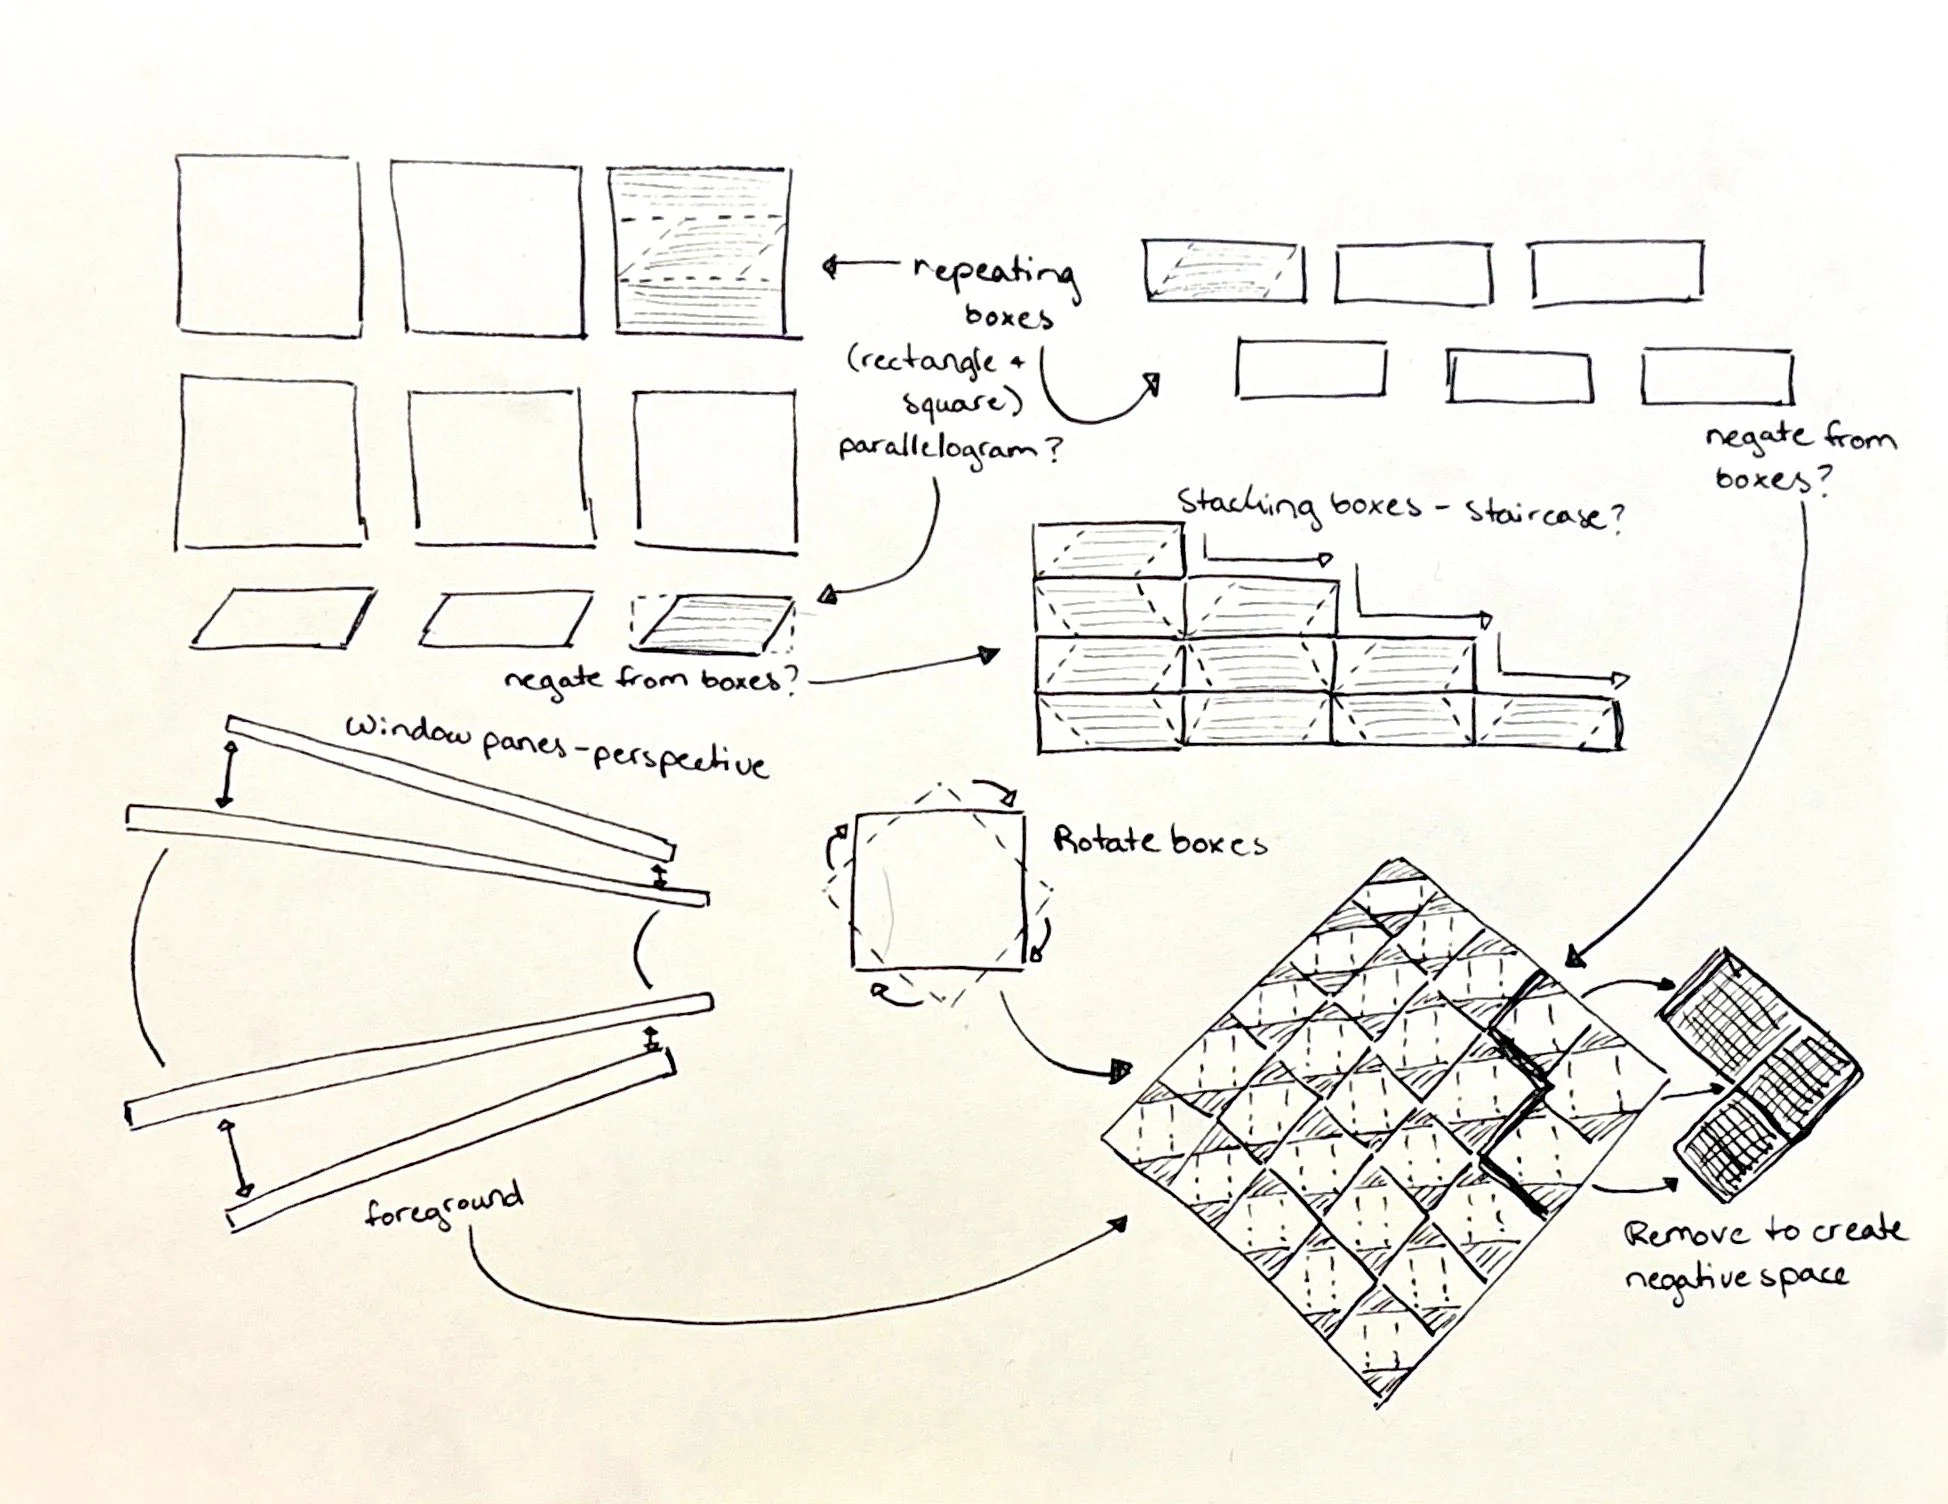 repeating
boxes
(rectangle +
square)
parallelogram?
negate from
boxes?
Stacking boxes - Staircase?
negate from boxes?
Window panes - perspective
Rotate boxes
foreground
Remove to create
negative space